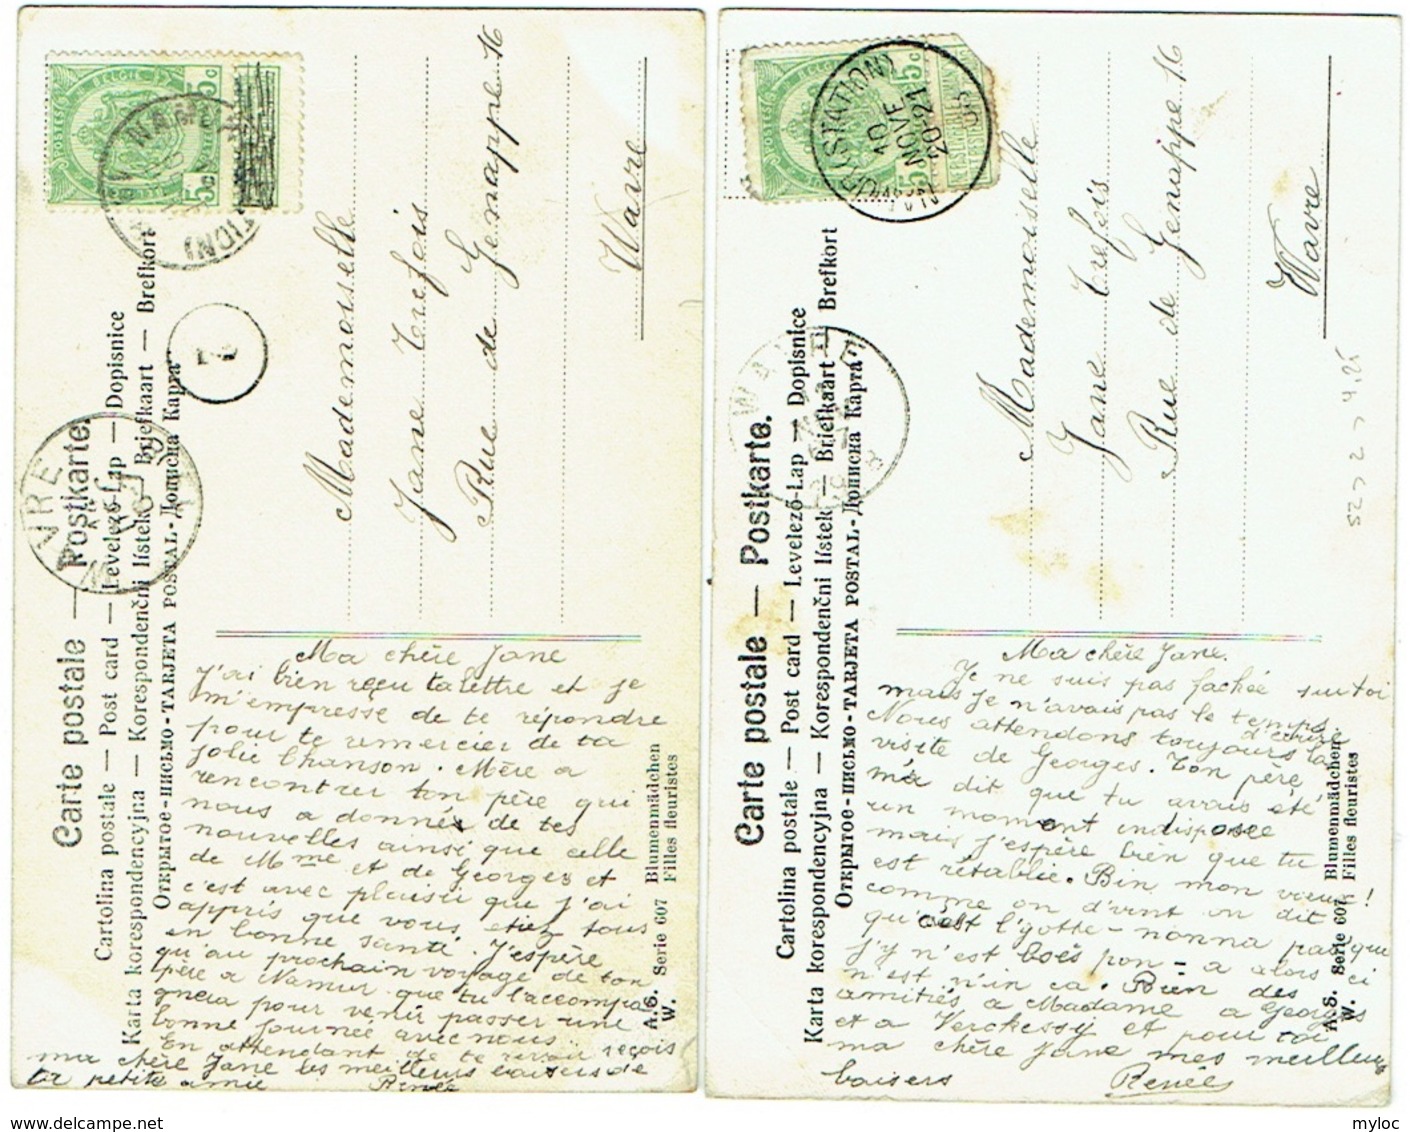 Carte postale — Postkarte.
Cartolina postale — Post card — Levelező-Lap — Dopisnice
Karta korespondencyjna — Korespondenční lístek — Briefkaart — Brefkort
Открытое-письмо-TARJETA POSTAL-Дописна Карта
Mademoiselle
Jane Trefois
Rue de Genappe 16
Wavre
Ma chère Jane
J'ai bien reçu ta lettre et je
m'empresse de te répondre
pour te remercier de ta
jolie chanson. Mère a
rencontrer ton père qui
nous a donnés de tes
nouvelles ainsi que celle
de Mme et de Georges et
c'est avec plaisir que j'ai
appris que vous etiez tous
en bonne santé. J'espère
qu'au prochain voyage de ton
père a Namur que tu l'accompa
gnera pour venir passer une
bonne journée avec nous.
En attendant de te revoir reçois
ma chère Jane les meilleurs baisers de
ta petite amie Renée
A.S. W. Serie 607 Blumenmädchen
Filles fleuristes
Carte postale — Postkarte.
Cartolina postale — Post card — Levelező-Lap — Dopisnice
Karta korespondencyjna — Korespondenční lístek — Briefkaart — Brefkort
Открытое-письмо-TARJETA POSTAL-Дописна Карта
Mademoiselle
Jane Trefois
Rue de Genappe 16
Wavre
Ma chère Jane.
Je ne suis pas fachée sur toi
mais je n'avais pas le temps
d'écrire
Nous attendons toujours la
visite de Georges. Ton père
m'a dit que tu avais été
un moment indisposée
mais j'espère bien que tu
est rétablie. Bin mon vieux!
comme on d'vint on dit
qu'c'est l'gotte-nonna pa que
j'y n'est bos pon - a alors ci
n'est n'in ca. Bien des
amitiés a Madame a Georges
et a Verckessy et pour toi
ma chère Jane mes meilleurs
baisers Renée
A.S. W. Serie 607 Blumenmädchen
Filles fleuristes
POSTES BELGIE 5c 5c
POSTES BELGIE 5c 5c
(STATION)
10
NOVE
20-21
WAVRE
myloc